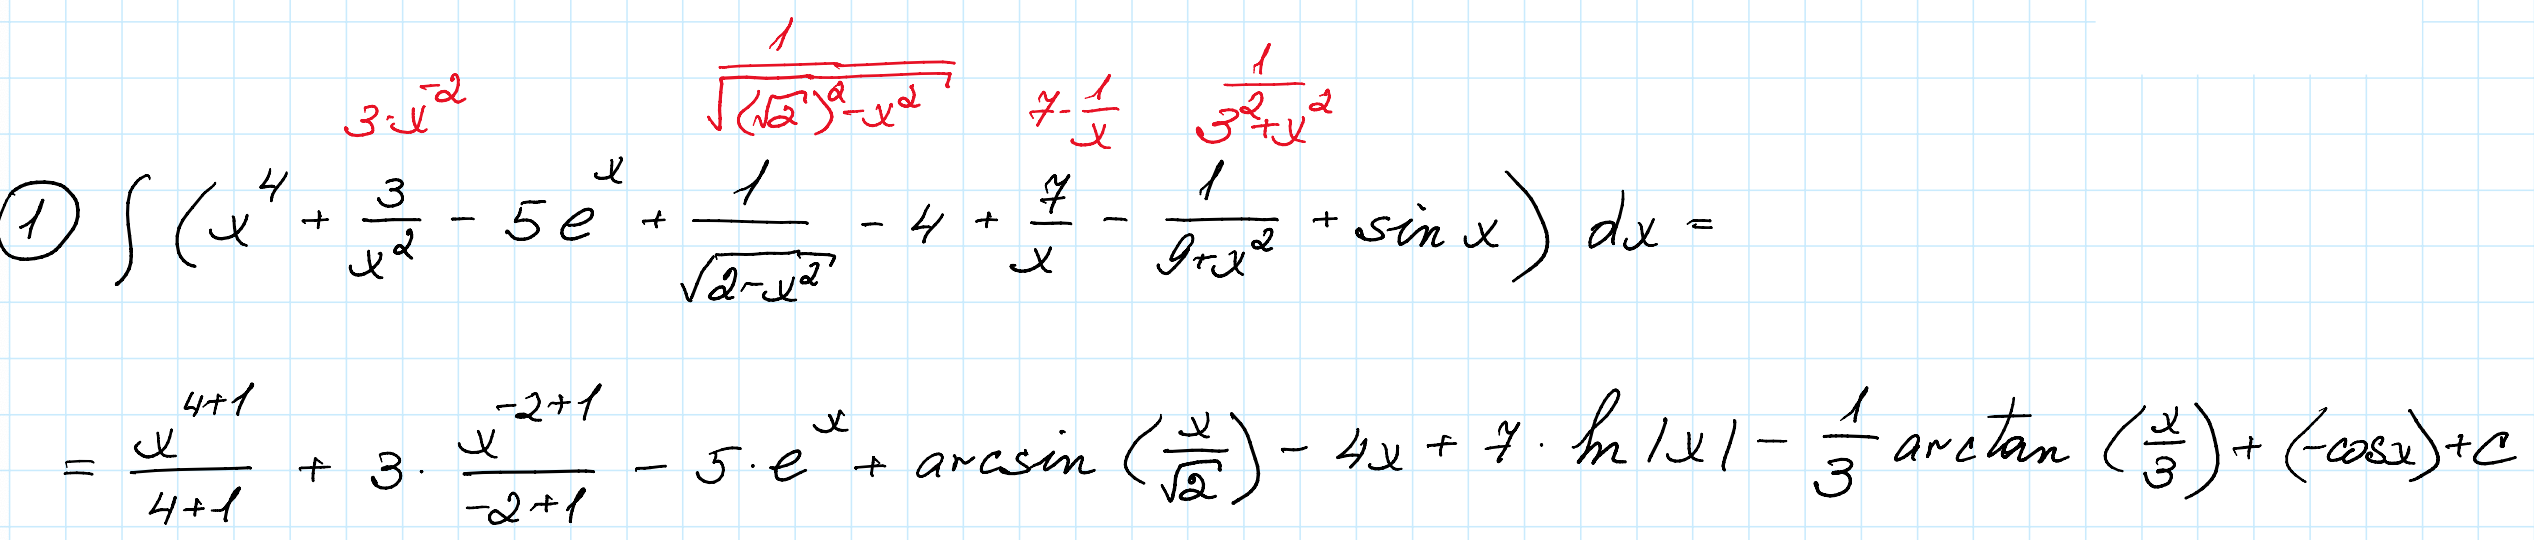 3·x^{-2}   \frac{1}{\sqrt{(\sqrt{2})^2-x^2}}   7·\frac{1}{x}   \frac{1}{3^2+x^2}
① ∫ (x^4 + \frac{3}{x^2} - 5e^x + \frac{1}{\sqrt{2-x^2}} - 4 + \frac{7}{x} - \frac{1}{9+x^2} + sin x) dx =
= \frac{x^{4+1}}{4+1} + 3·\frac{x^{-2+1}}{-2+1} - 5·e^x + arcsin (\frac{x}{\sqrt{2}}) - 4x + 7·ln|x| - \frac{1}{3} arctan (\frac{x}{3}) + (-cosx)+C